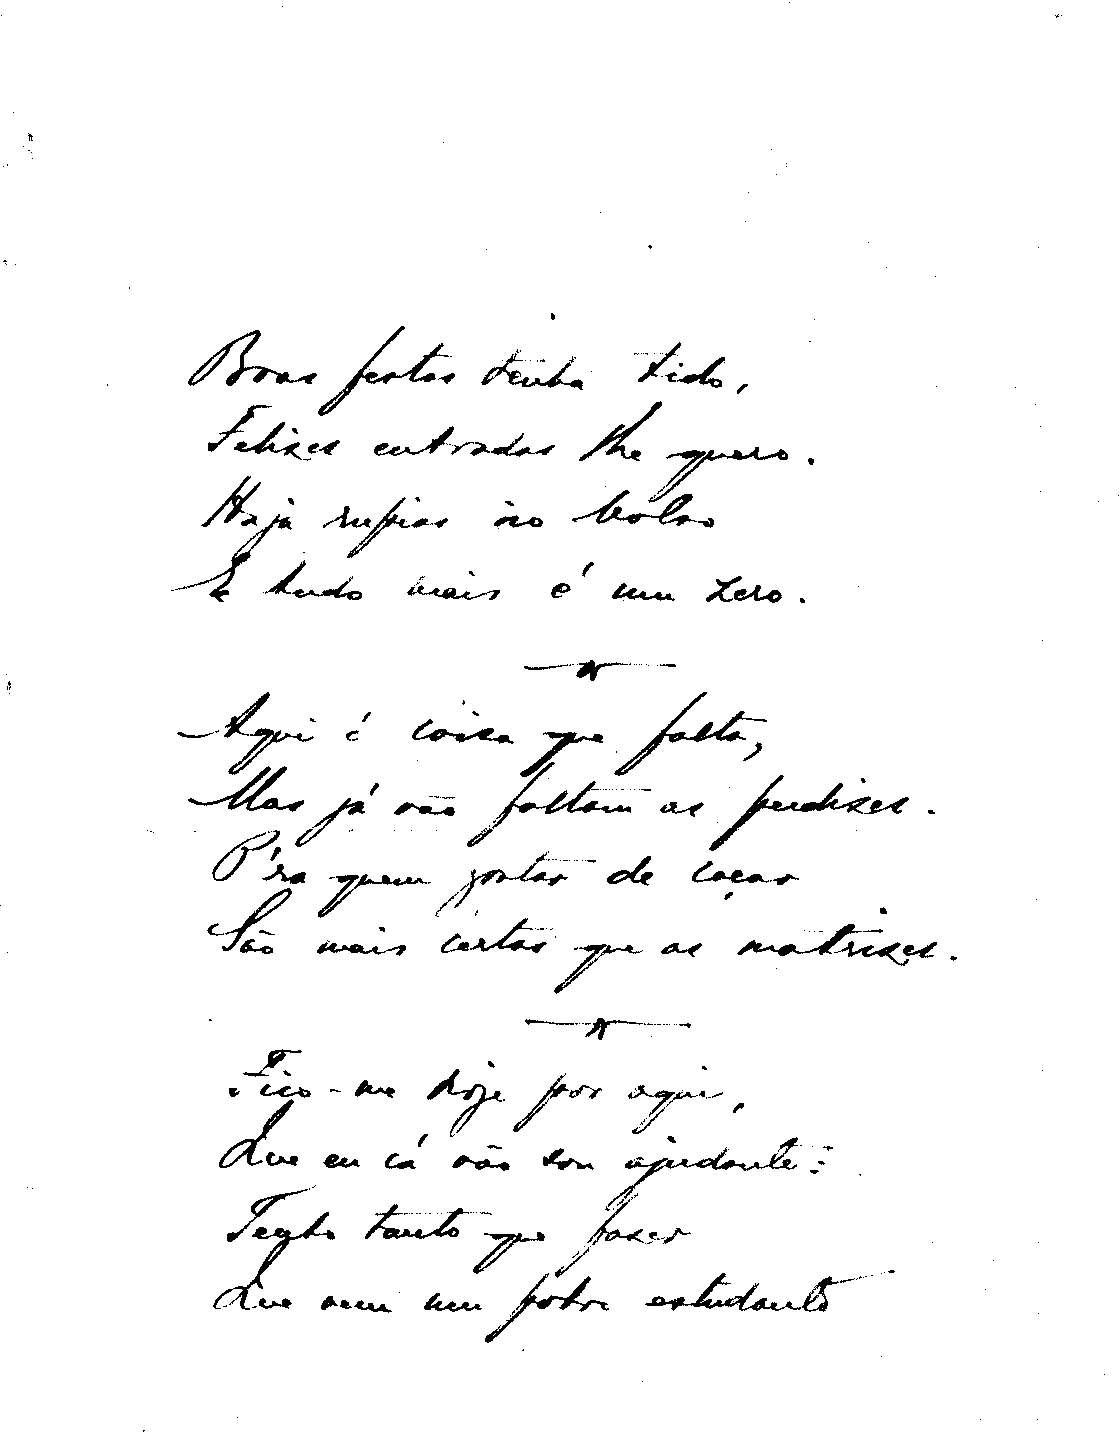 Boas festas tenha tido,
Felizes entradas lhe quero.
Haja rupias no bolso
E tudo mais é um zero.
Aqui é coisa que falta,
Mas já não faltam as perdizes.
P'ra quem gostar de caçar
São mais certas que as matrizes.
Fico-me hoje por aqui,
Que eu cá não sou ajudante:
Tenho tanto que fazer
Que nem um pobre estudante